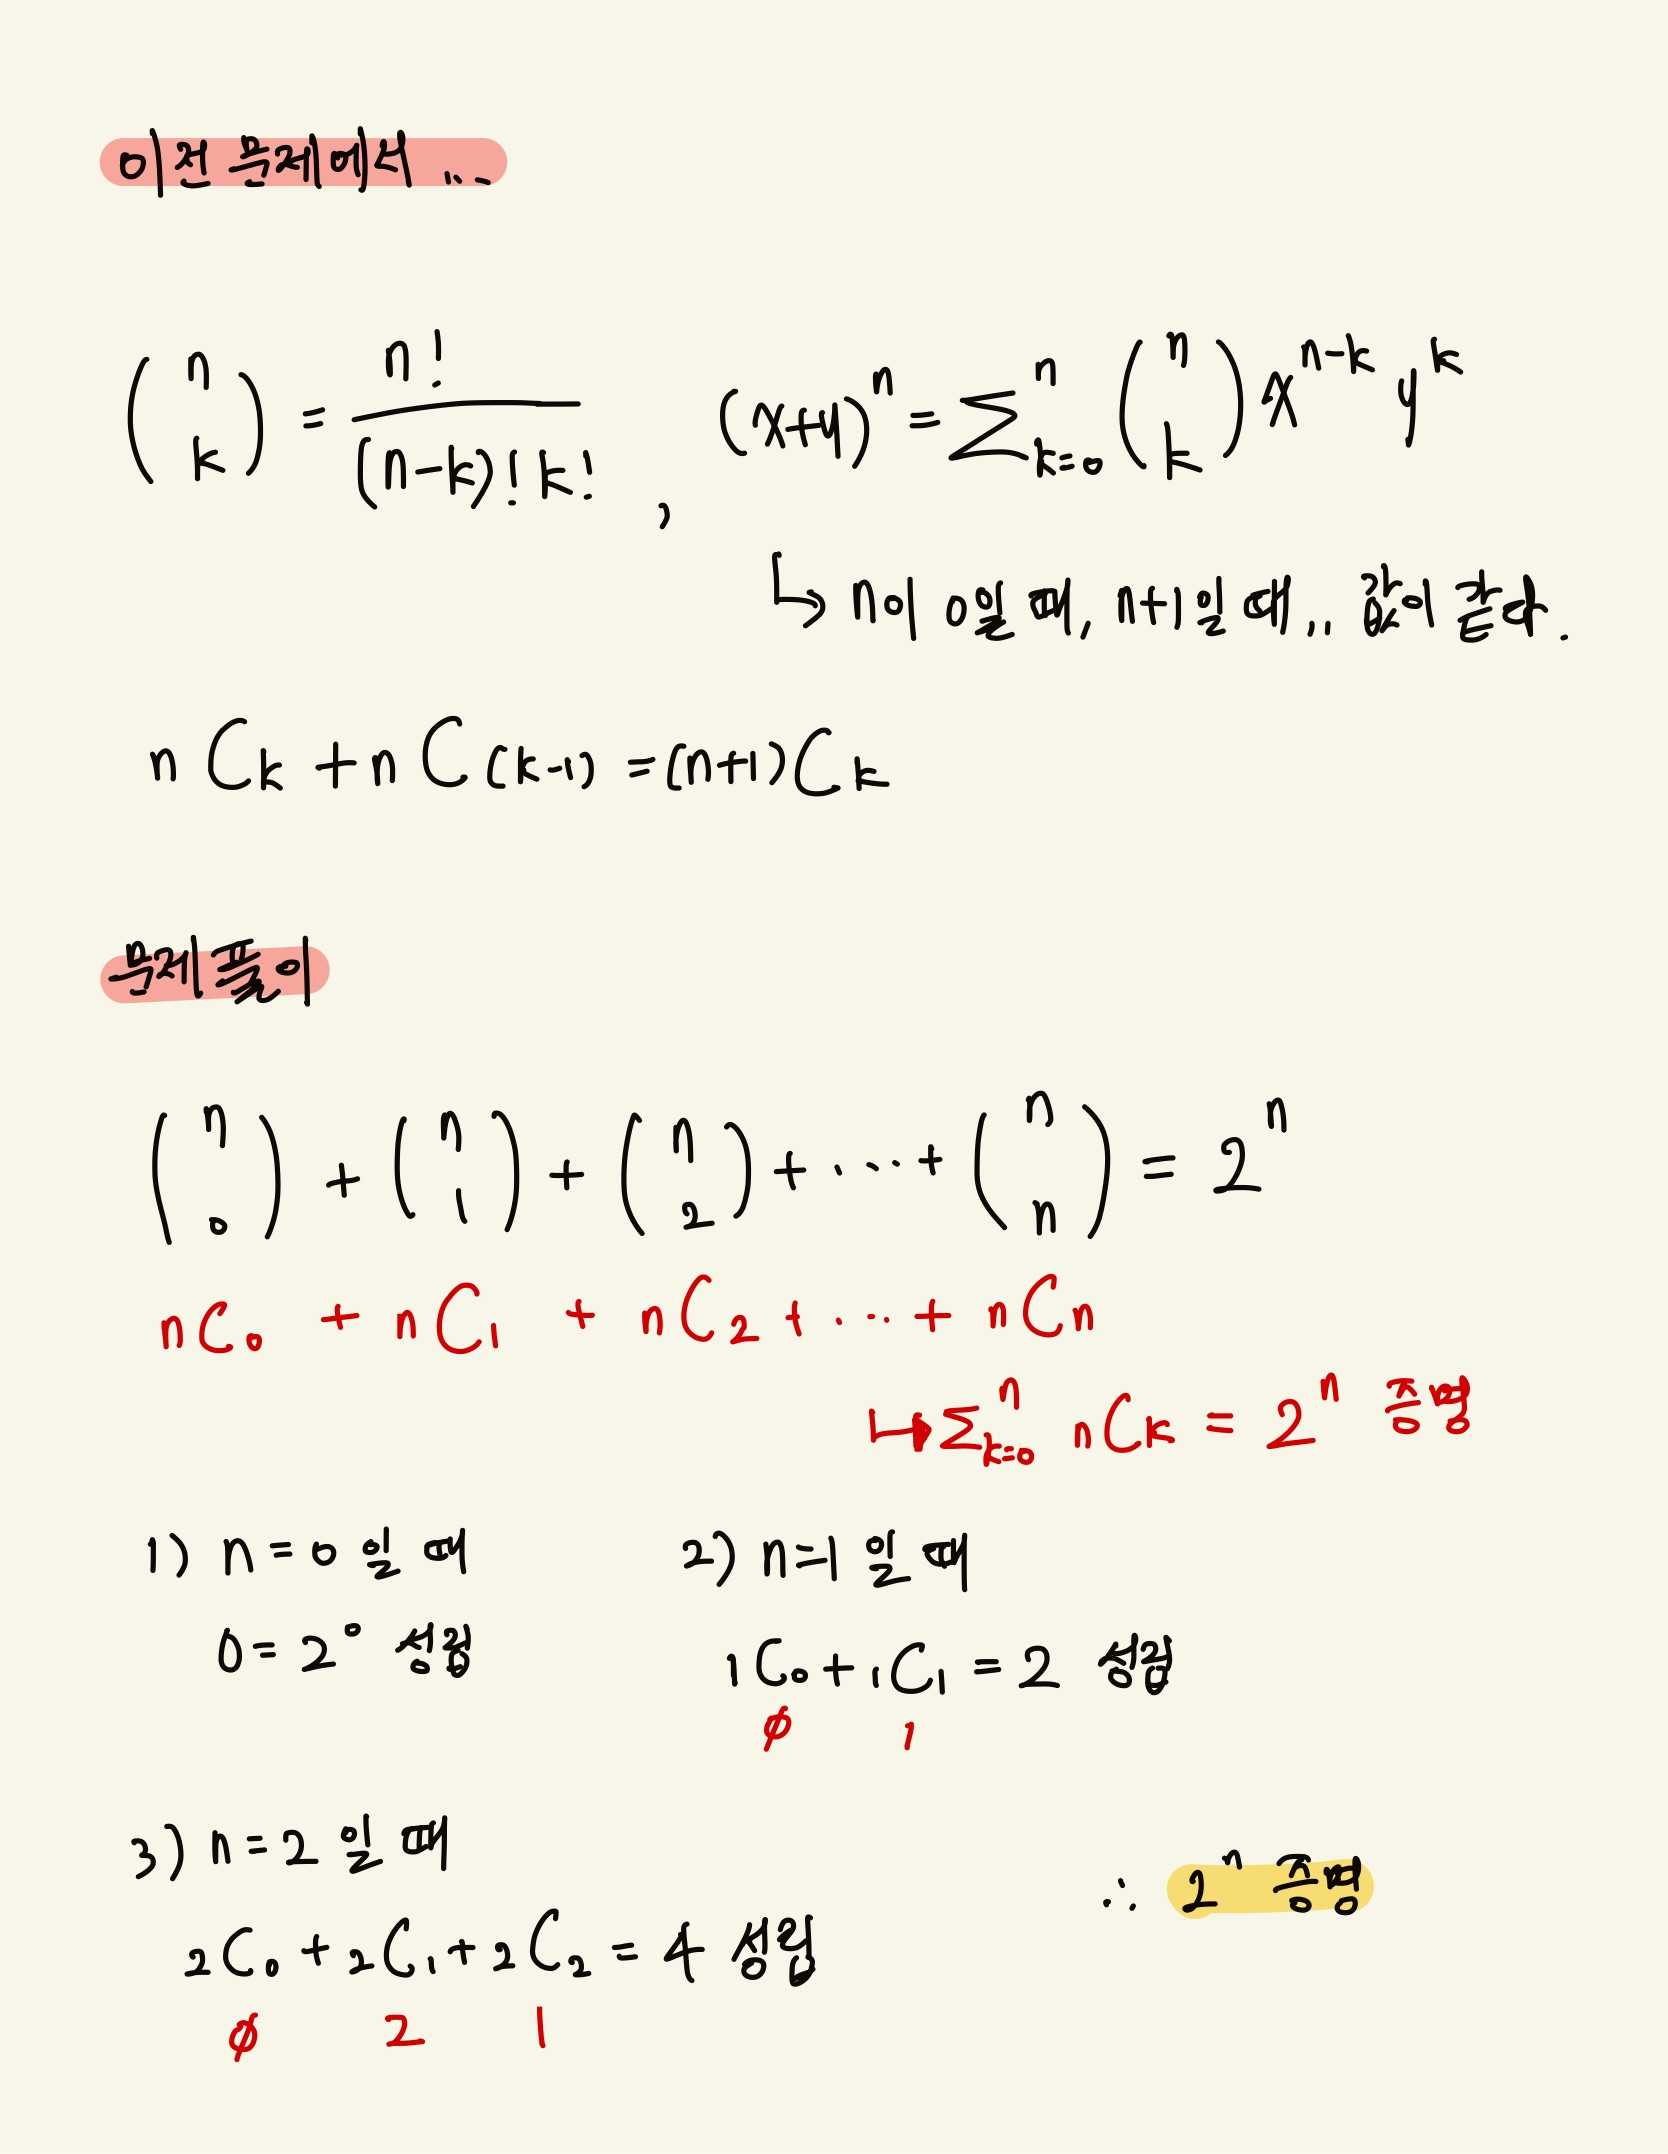 이전 문제에서 ...
(n k) = n! / (n-k)! k! , (x+y)^n = Σ_{k=0}^n (n k) x^{n-k} y^k
↳ n이 0일 때, n+1일 때,, 값이 같다.
nCk + nC(k-1) = (n+1)Ck
문제풀이
(n 0) + (n 1) + (n 2) + ... + (n n) = 2^n
nC0 + nC1 + nC2 + ... + nCn
↳ Σ_{k=0}^n nCk = 2^n 증명
1) n=0 일 때
0 = 2^0 성립
2) n=1 일 때
1C0 + 1C1 = 2 성립
∅ 1
3) n=2 일 때
2C0 + 2C1 + 2C2 = 4 성립
∅ 2 1
∴ 2^n 증명